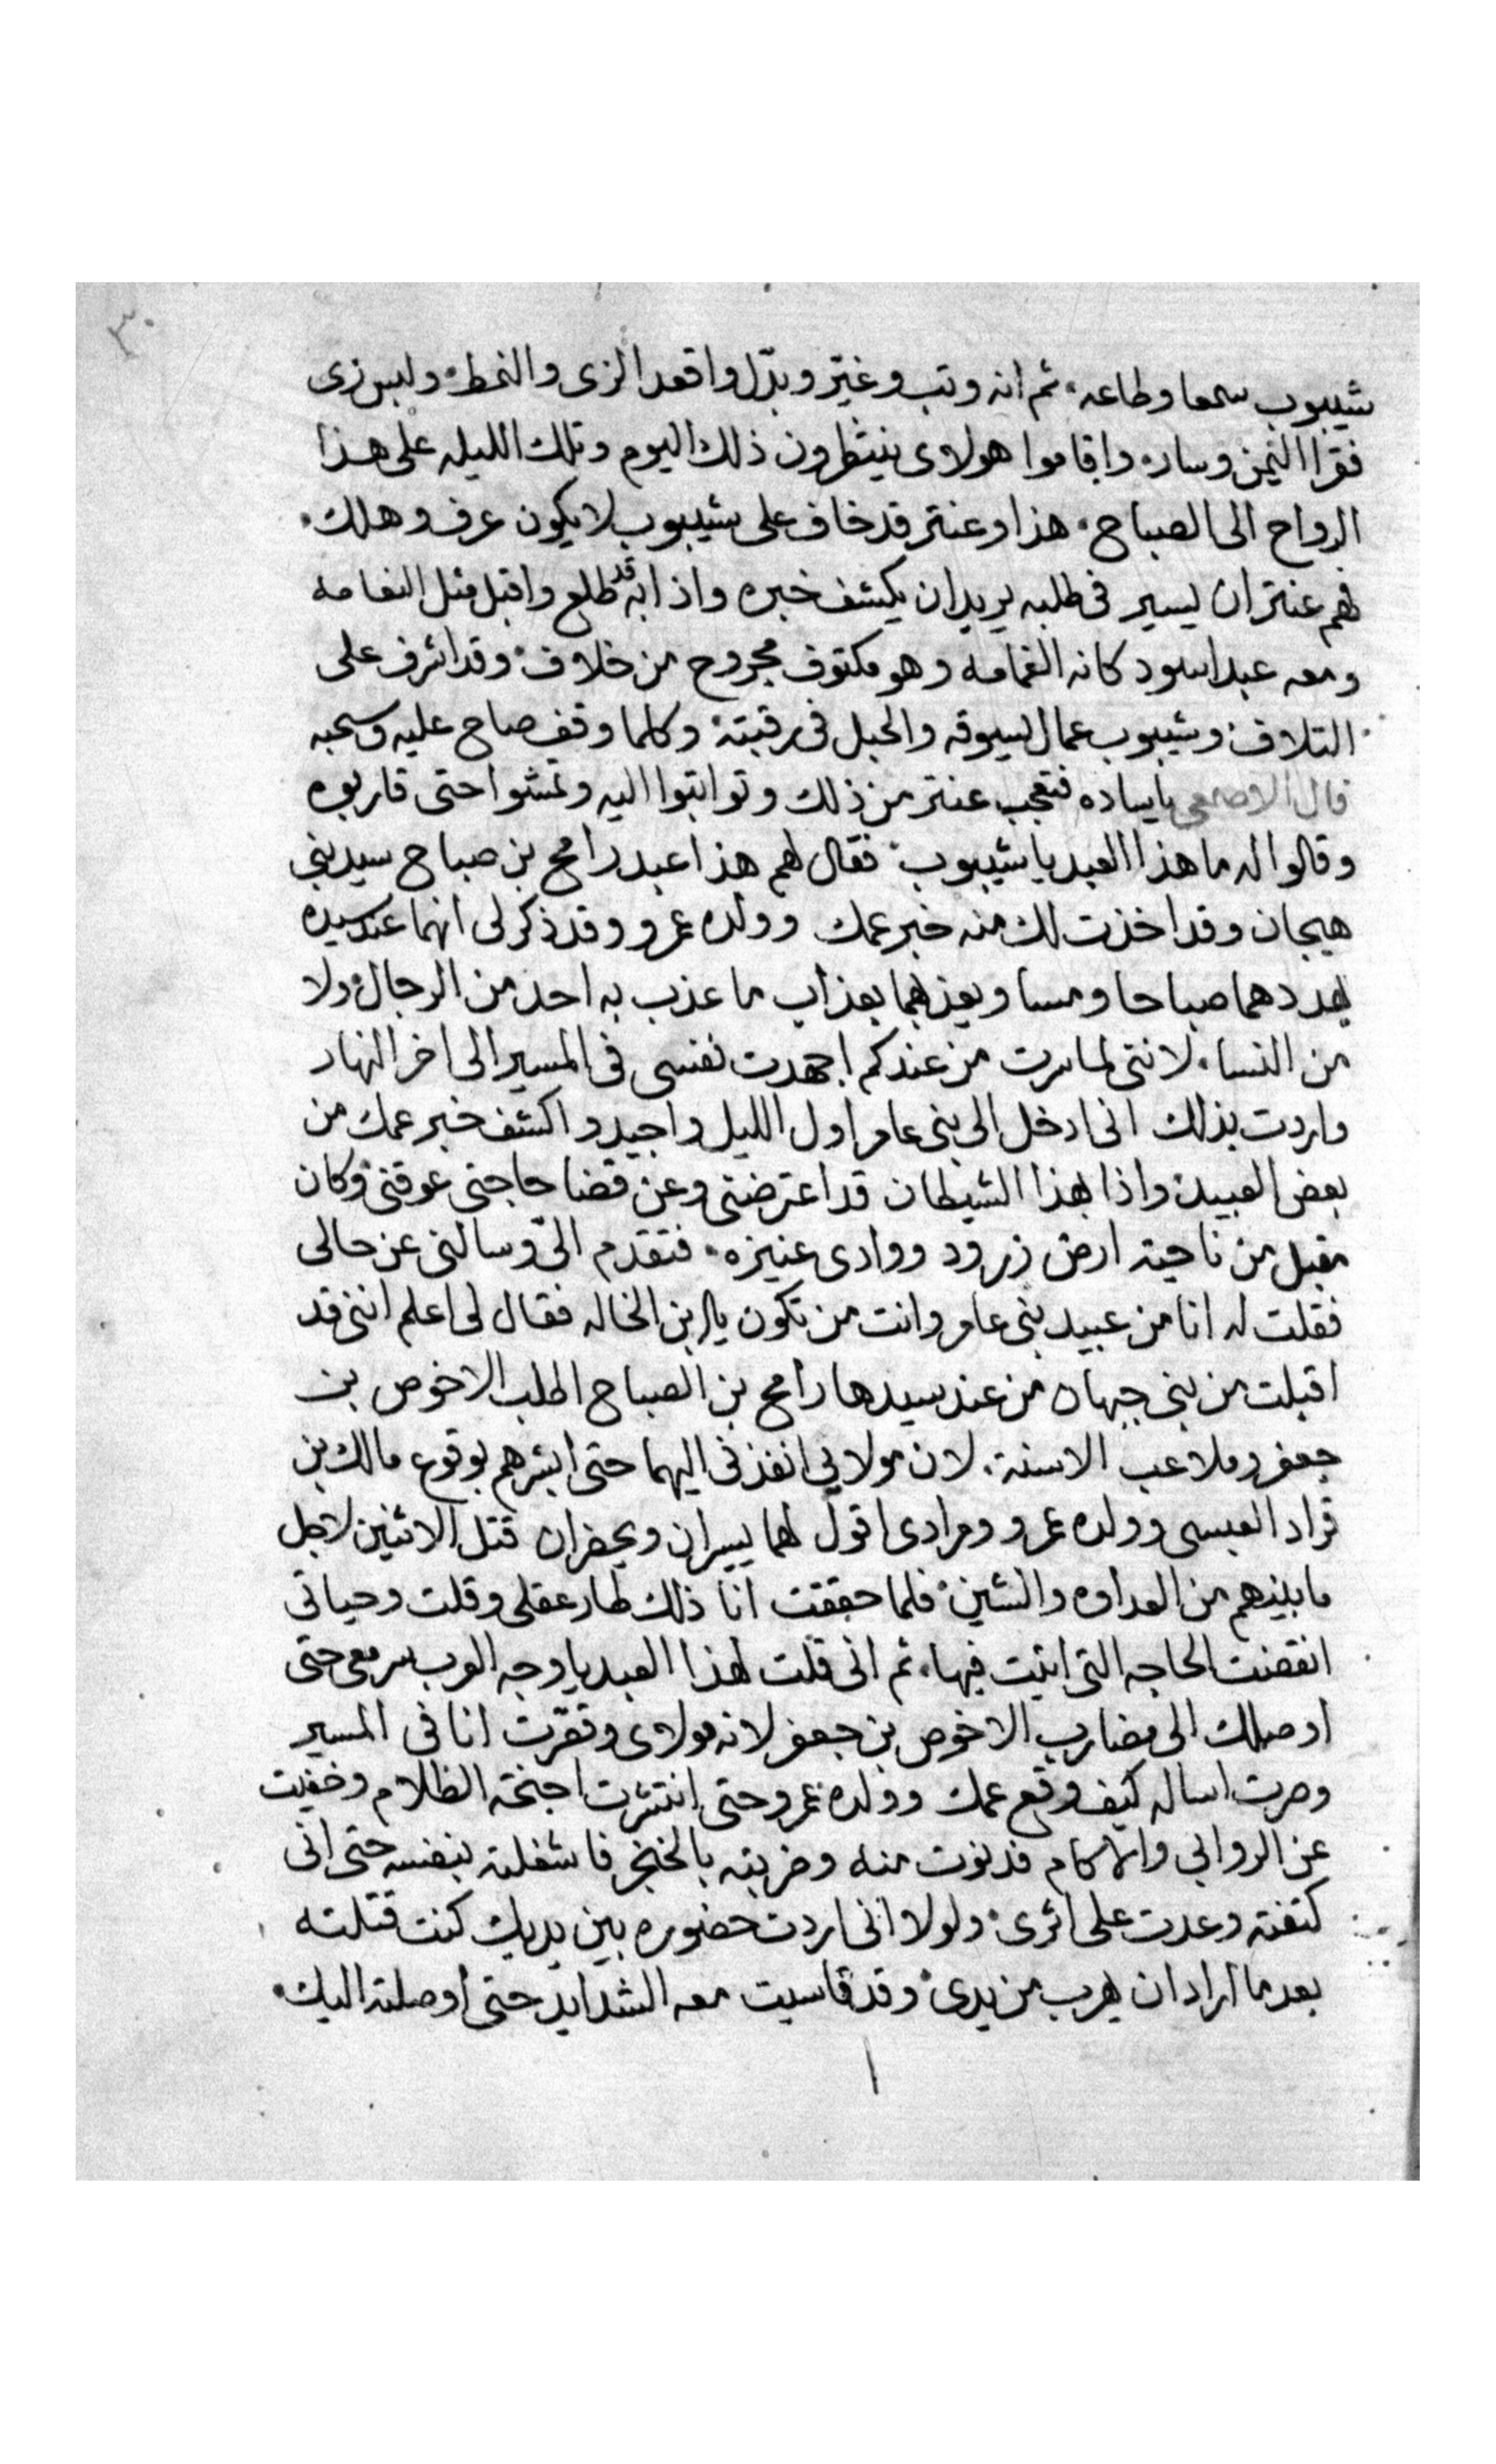 ٣٠
شيبوب سمعا وطاعه ثم انه وتب وغيّر وبدّل واقعد الزى والنمط ولبس زى
فقرا اليمن وسار واقاموا هولاى ينتظرون ذلك اليوم وتلك الليله على هذا
الرواح الى الصباح هذا وعنتر قد خاف على شيبوب لا يكون عرف وهلك
فهم عنتر ان يسير فى طلبه يريد ان يكشف خبره واذا به قد طلع واقبل مثل النعامه
ومعه عبد اسود كانه الغمامه وهو مكتوف مجروح من خلاف وقد اشرف على
التلاف وشيبوب عمال يسوقه والحبل فى رقبته وكلما وقف صاح عليه وسحبه
قال الاصمعى ياساده فتعجب عنتر من ذلك وتواتبوا اليه وتمشوا حتى قاربوه
وقالوا له ما هذا العبد يا شيبوب فقال لهم هذا عبد رامح بن صباح سيد بنى
هيجان وقد اخذت لك منه خبر عمك وولده عمرو وقد ذكر لى انهما عند سيده
يهددهما صباحا ومسا ويعذبهما بعذاب ما عذب به احد من الرجال ولا
من النسا لاننى لما سرت من عندكم اجهدت نفسى فى المسير الى اخر النهار
واردت بذلك انى ادخل الى بنى عامر اول الليل واجيد واكشف خبر عمك من
بعض العبيد واذا بهذا الشيطان قد اعترضنى وعن قضا حاجتى عوقنى وكان
مقبل من ناحية ارض زرود ووادى عنيزه فتقدم الىّ وسالنى عن حالى
فقلت له انا من عبيد بنى عامر وانت من تكون يا ابن الخاله فقال لى اعلم اننى قد
اقبلت من بنى جيهان من عند سيدها رامح بن الصباح اطلب الاخوص بن
جعفر وملاعب الاسنة لان مولاى انفذنى اليهما حتى ابشرهم بوقوع مالك بن
قراد العبسى وولده عمرو ومرادى اقول لهما يسيران ويحضران قتل الاثنين لاجل
ما بينهم من العداوه والشين فلما حققت انا ذلك طار عقلى وقلت وحياتى
انقضت الحاجه التى اتيت فيها ثم انى قلت لهذا العبد يا وجه العرب سر معى حتى
اوصلك الى مضارب الاخوص بن جعفر لانه مولاى وقصّرت انا فى المسير
وصرت اساله كيف وقع عمك وولده عمرو حتى انتشرت اجنحة الظلام وخفيت
عن الروابى والاكام فدنوت منه وضربته بالخنجر فاشغلته بنفسه حتى انى
كتفته وعدت على اثرى ولولا انى اردت حضوره بين يديك كنت قتلته
بعد ما اراد ان يهرب من يدى وقد قاسيت معه الشدايد حتى اوصلته اليك